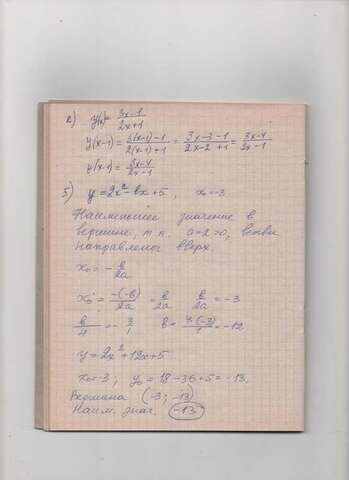 2) y(x)= 3x-1/2x+1
y(x-1) = 3(x-1)-1/2(x-1)+1 = 3x-3-1/2x-2+1 = 3x-4/2x-1
y(x-1) = 3x-4/2x-1
5) y = 2x² - bx + 5, x₀=-3
Наименьшее значение в
вершине, т.к. a=2>0, ветви
направлены вверх.
x₀ = - b/2a
x₀ = -(-b)/2a = b/2a b/2a = -3
b/4 = - 3/1 b = 4·(-3)/1 = -12
y = 2x² + 12x + 5
x₀=-3; y₀ = 18 - 36 + 5 = -13.
Вершина (-3; -13)
Наим. знач. -13